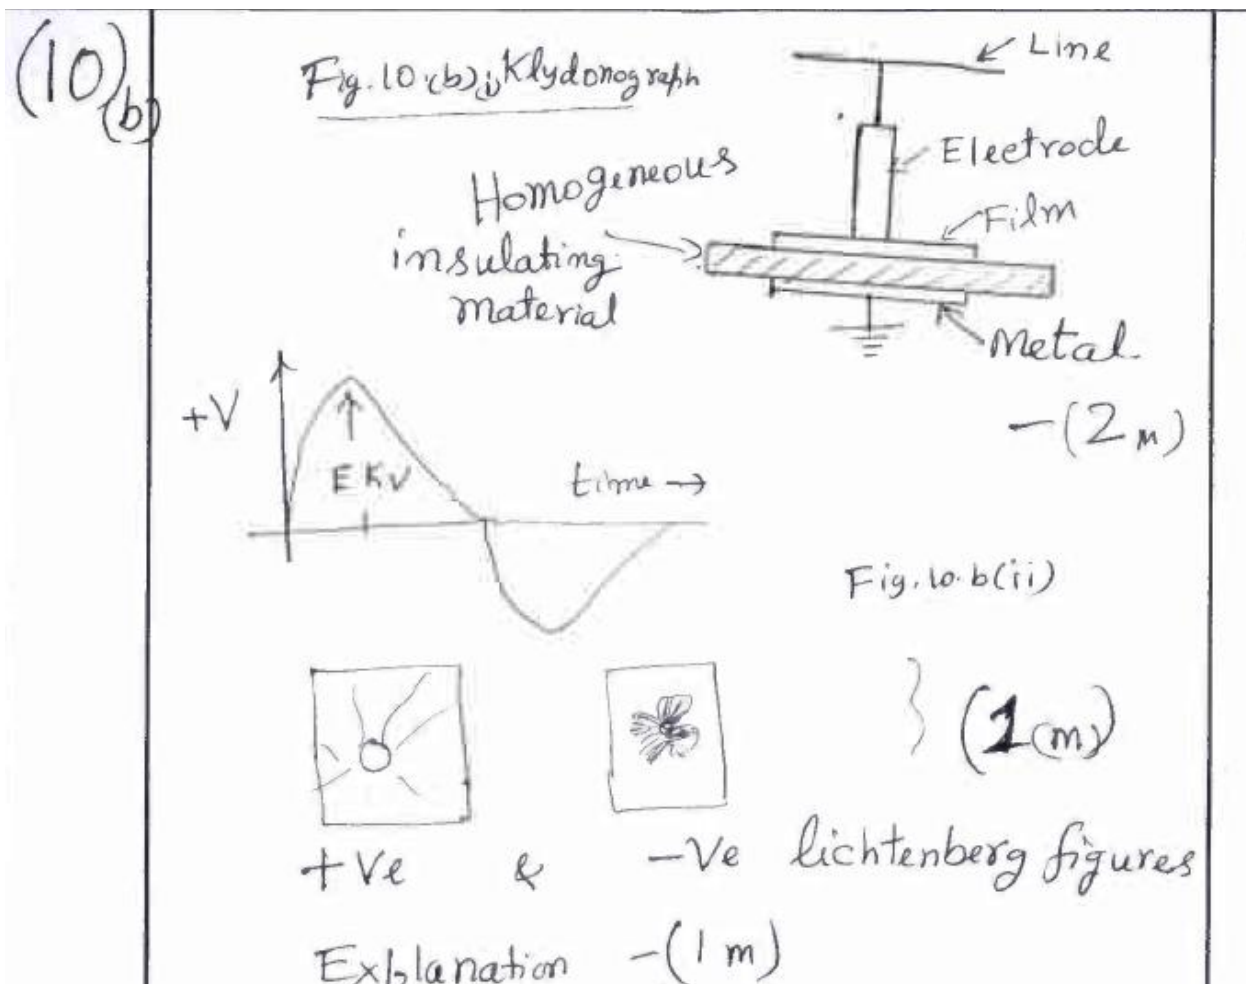 (10)
(b)
Fig.10.(b),(i) Klydonograph
Line
Electrode
Film
Homogeneous
insulating
material
Metal.
-(2m)
+V
E KV
time →
Fig.10.b(ii)
(1(m))
+Ve & -Ve lichtenberg figures
Explanation -(1m)